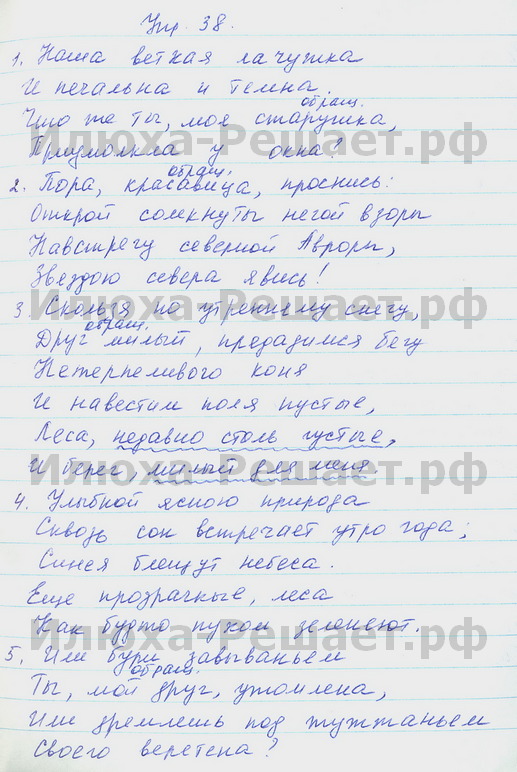 Упр. 38.
1. Наша ветхая лачужка
И печальна и темна.
обращ.
Что же ты, моя старушка,
Илюха-Решает.рф
Приумолкла у окна?
обращ.
2. Пора, красавица, проснись:
Открой сомкнуты негой взоры
Навстречу северной Авроры,
Звездою севера явись!
Илюха-Решает.рф
3. Скользя по утреннему снегу,
обращ.
Друг милый, предадимся бегу
Нетерпеливого коня
И навестим поля пустые,
Леса, недавно столь густые,
Илюха-Решает.рф
И берег, милый для меня.
4. Улыбкой ясною природа
Сквозь сон встречает утро года;
Синея блещут небеса.
Еще прозрачные, леса
Как будто пухом зеленеют.
Илюха-Решает.рф
5. Или бури завываньем
обращ.
Ты, мой друг, утомлена,
Или дремлешь под жужжаньем
Своего веретена?